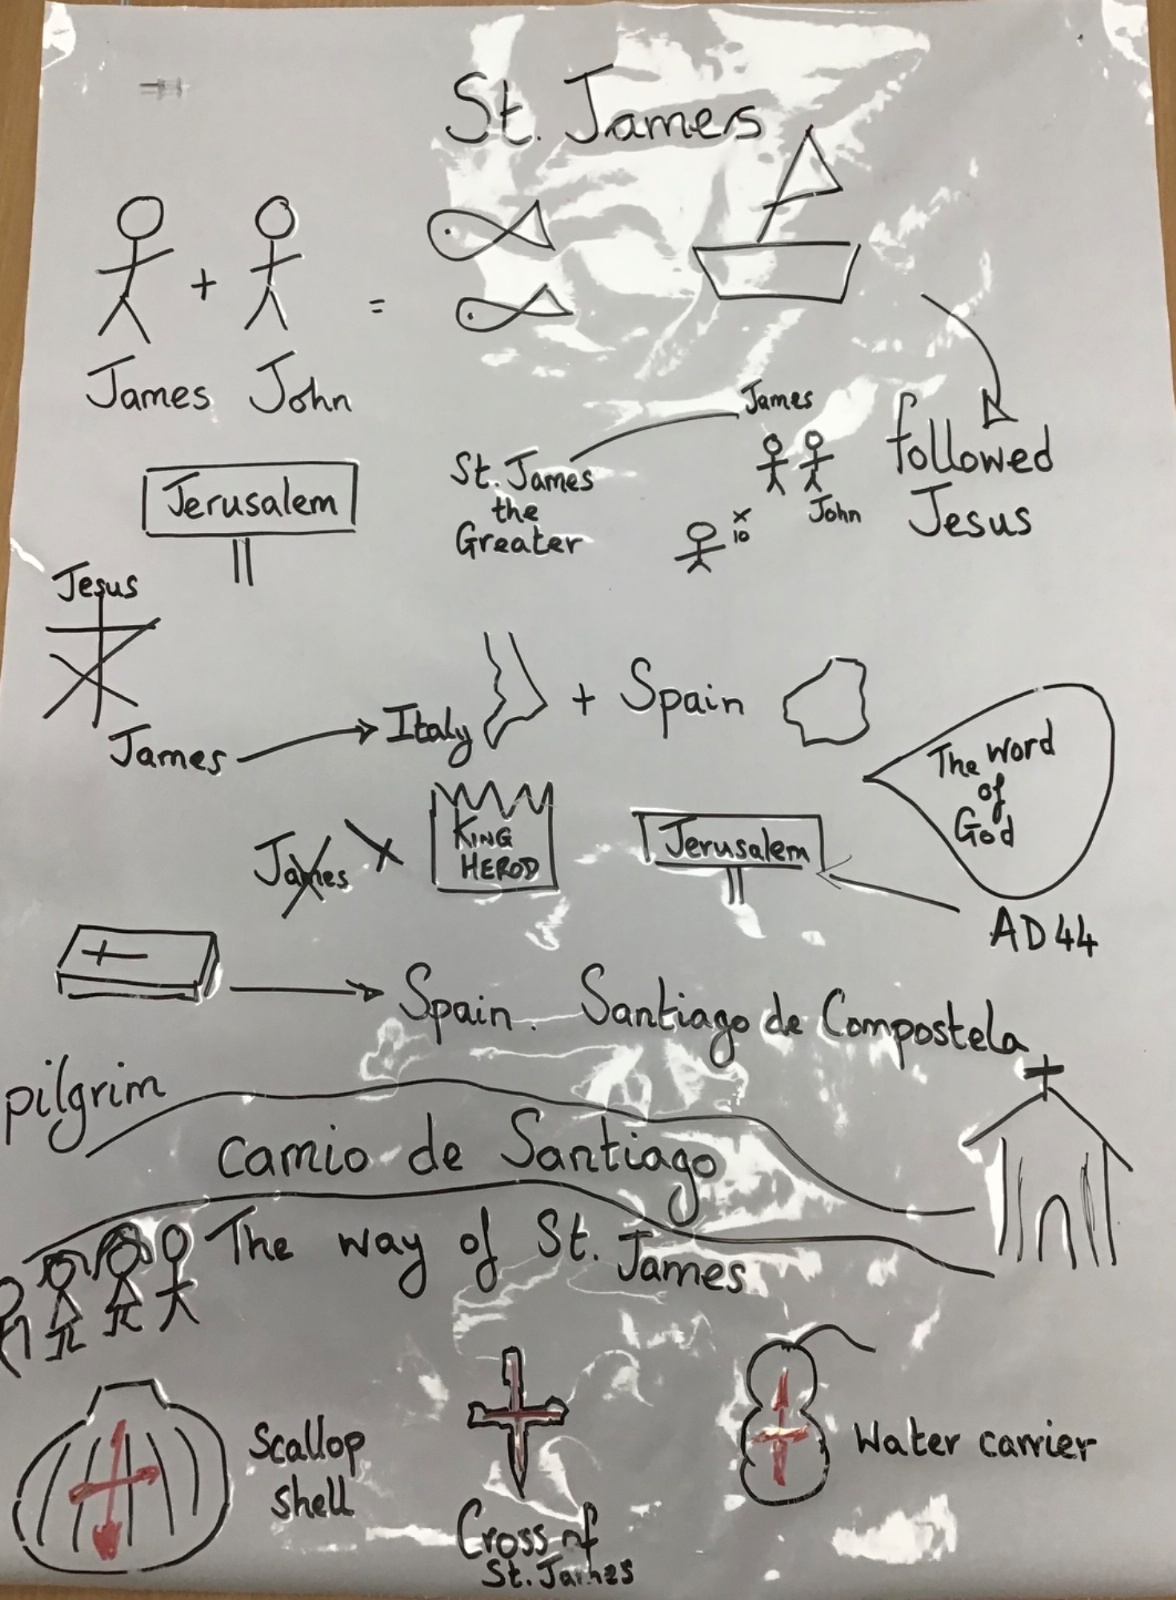 St. James
+
=
James John
James
St. James
the
Greater
John
x
10
followed
Jesus
Jerusalem
Jesus
James
Italy
+ Spain
The word
of
God
James
KING
HEROD
Jerusalem
AD 44
Spain. Santiago de Compostela
pilgrim
camio de Santiago
The way of St. James
Scallop
shell
Cross of
St. James
Water carrier